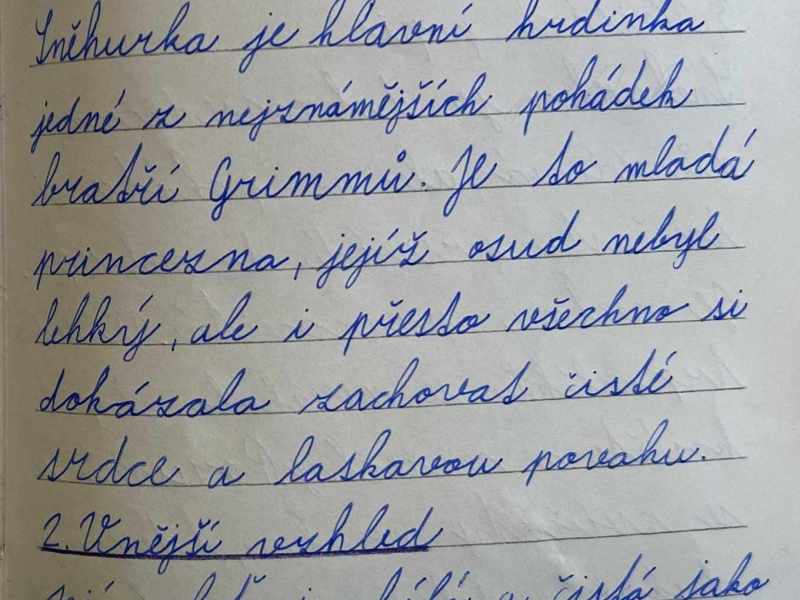 Sněhurka je hlavní hrdinka
jedné z nejznámějších pohádek
bratří Grimmů. Je to mladá
princezna, jejíž osud nebyl
lehký, ale i přesto všechno si
dokázala zachovat čisté
srdce a laskavou povahu.
2. Vnější vzhled
a čistá jako